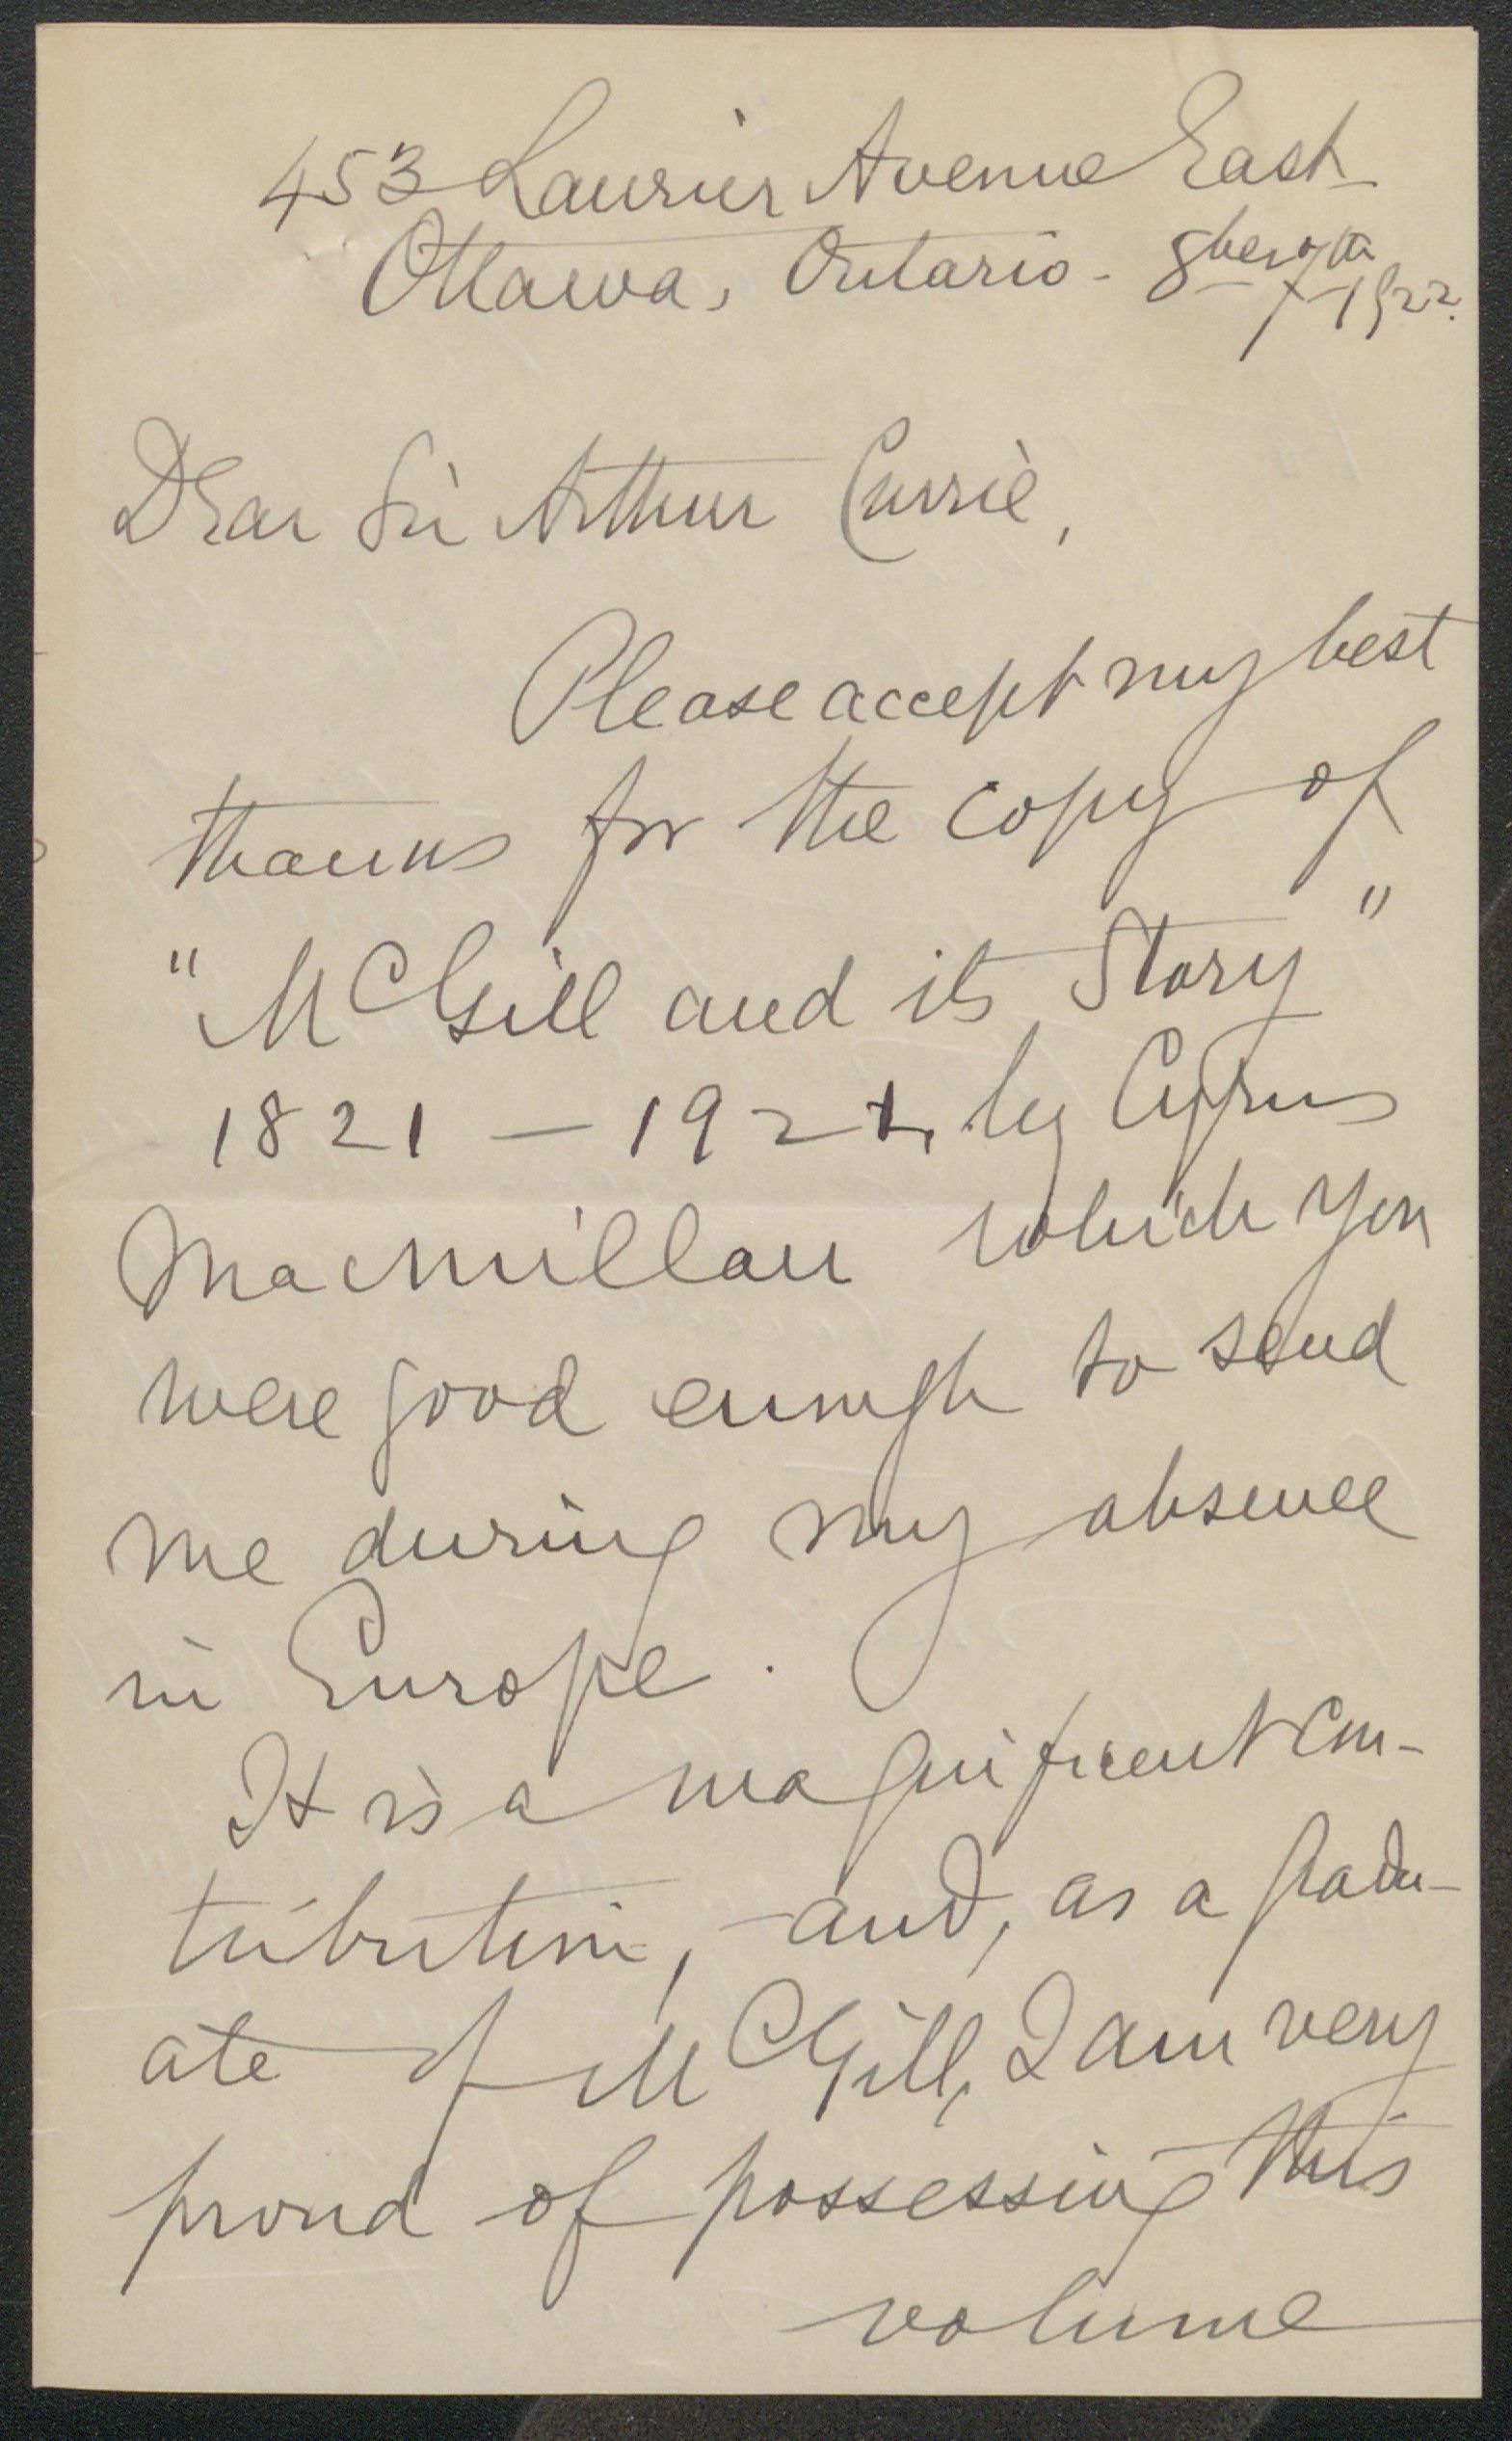 453 Laurier Avenue East
Ottawa, Ontario - 8ber 7th 1922.
Dear Sir Arthur Currie,
Please accept my best
thanks for the copy of
"McGill and its Story"
1821 — 1921, by Cyrus
Macmillan which you
were good enough to send
me during my absence
in Europe.
It is a magnificent con-
tribution, - and, as a gradu-
ate of McGill, I am very
proud of possessing this
volume